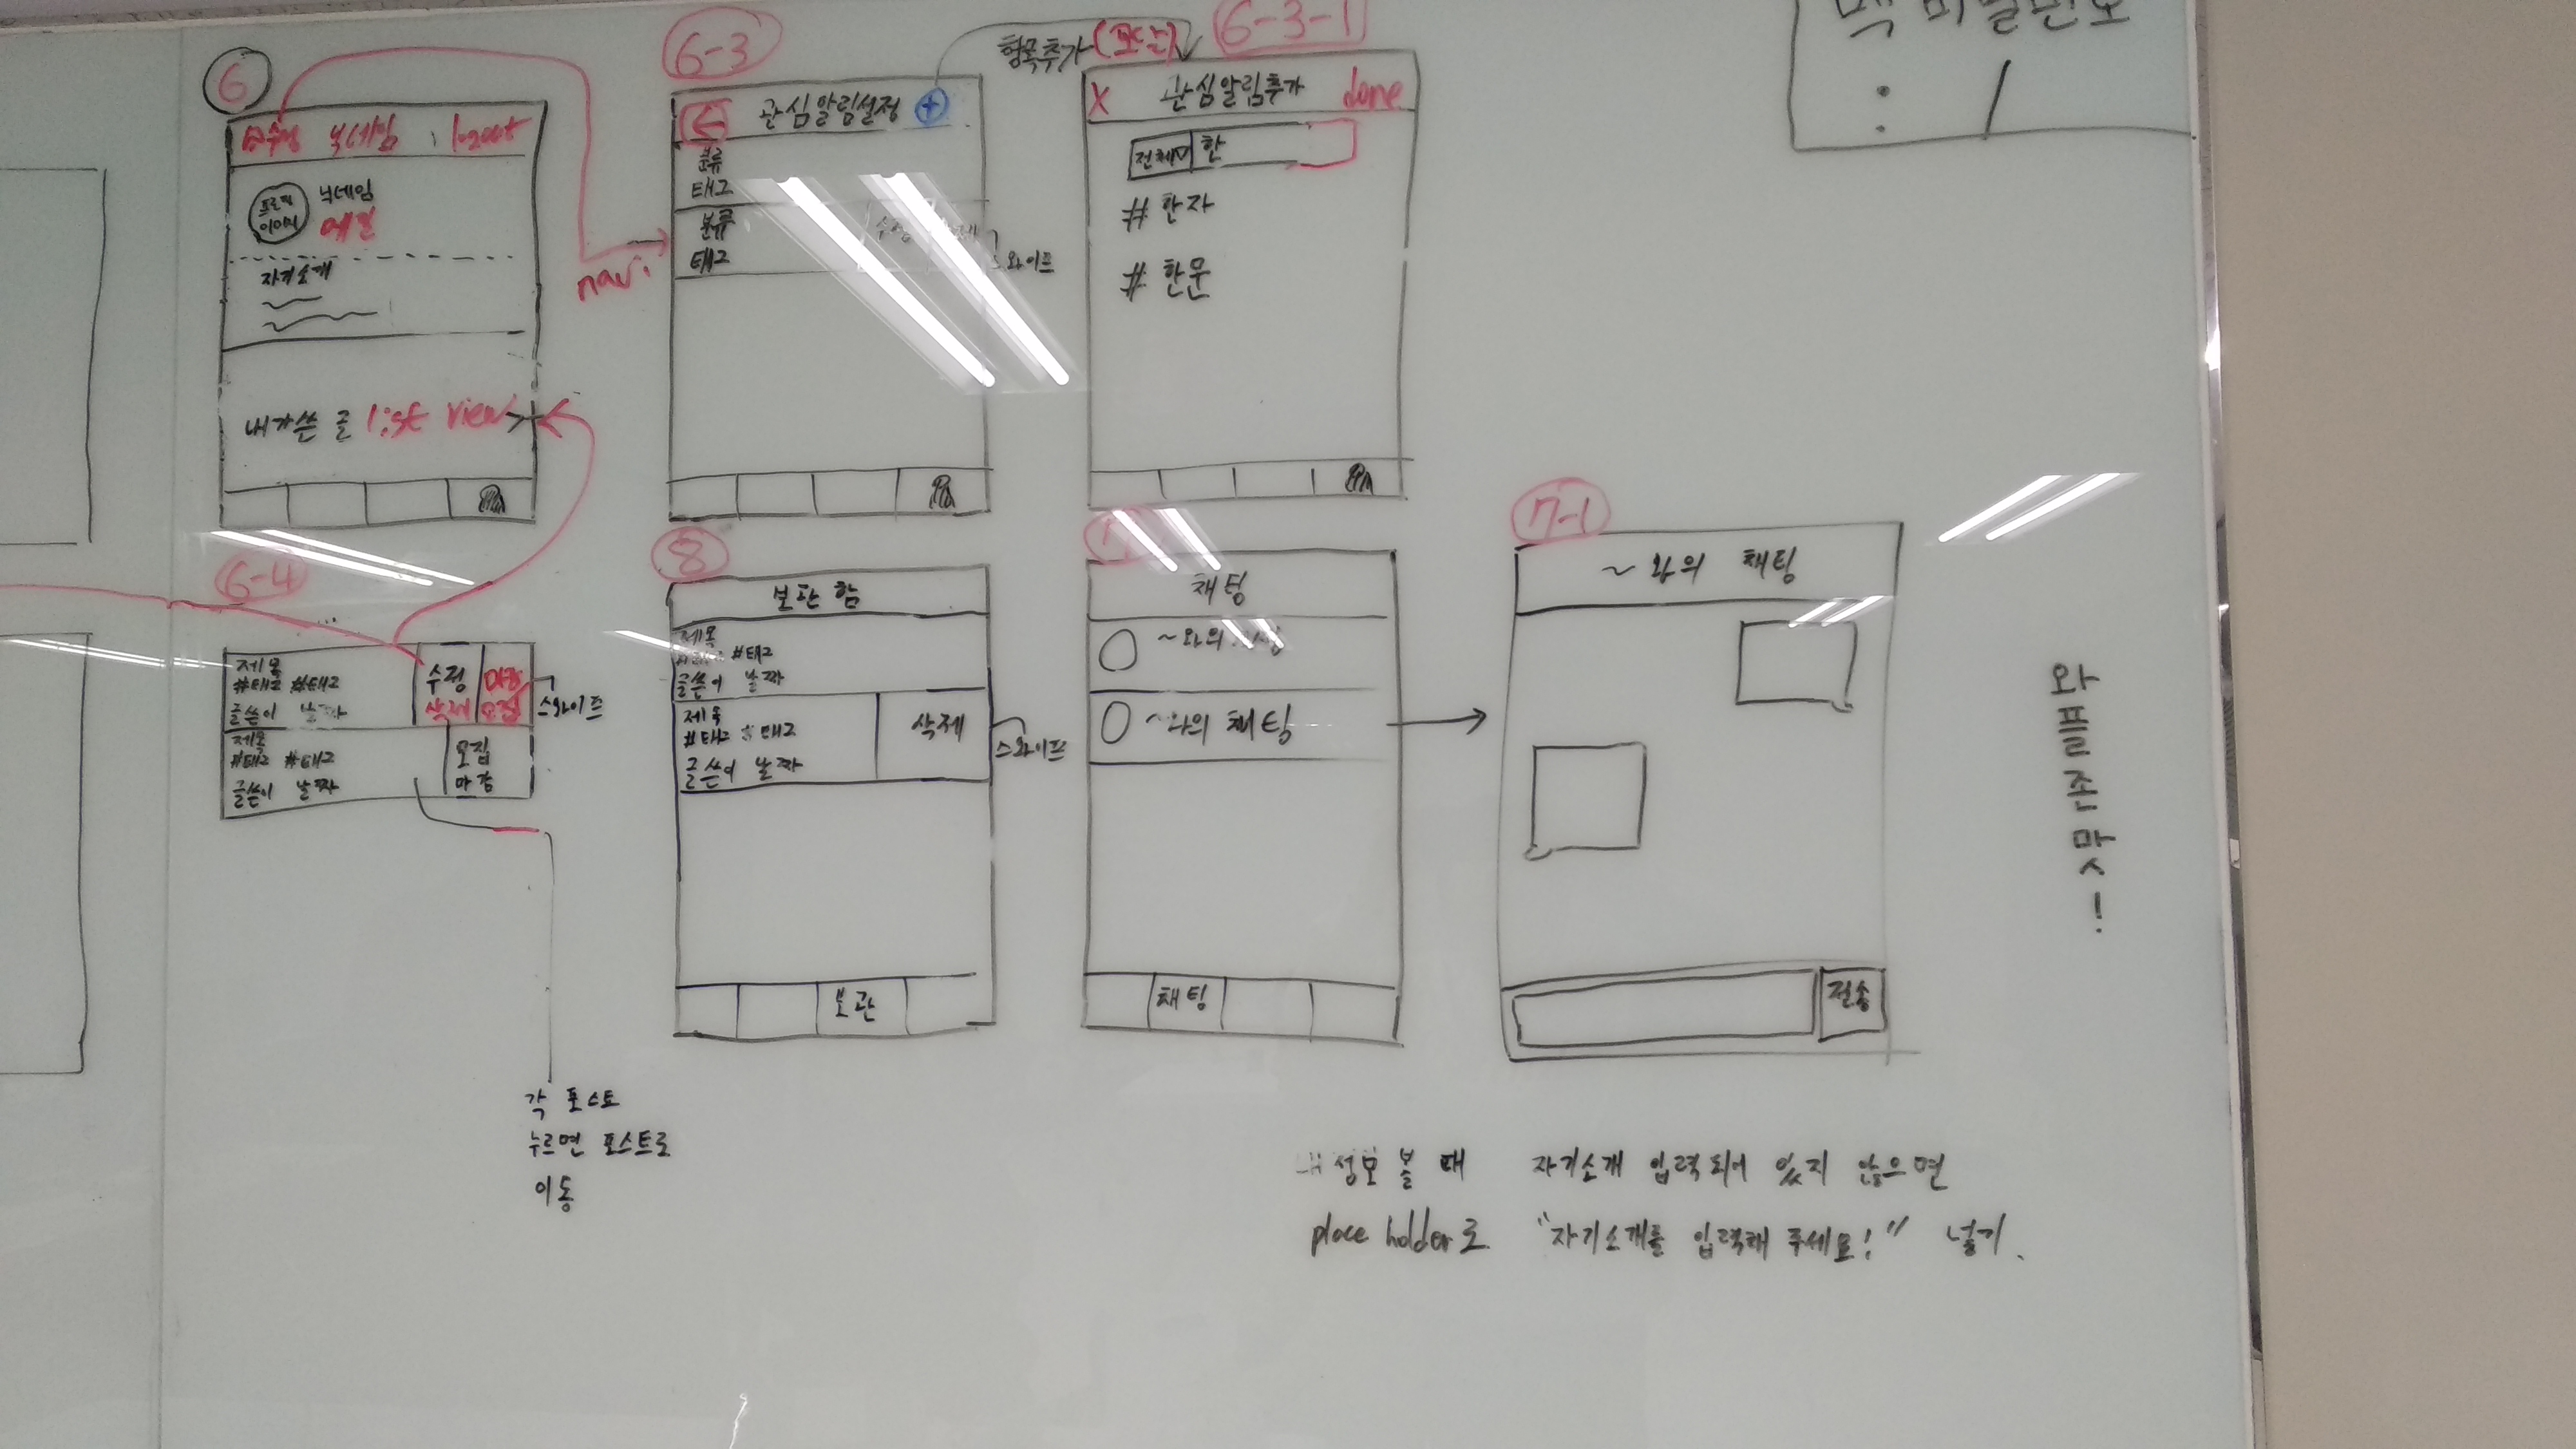 6
닉네임 logout
프로필
이미지
닉네임
메일
자기소개
내가쓴 글 list view >
navi.
6-3
← 관심알림설정 +
분류
태그
분류
태그
수정 삭제
스와이프
항목추가 (모달)
6-3-1
X 관심알림추가 done
전체 한
# 한자
# 한문
6-4
제목
#태그 #태그
글쓴이 날짜
수정
삭제
마감
모집
스와이프
제목
#태그 #태그
글쓴이 날짜
모집
마감
각 포스트
누르면 포스트로
이동
8
보관함
제목
#태그 #태그
글쓴이 날짜
제목
#태그 #태그
글쓴이 날짜
삭제
스와이프
보관
7
채팅
~와의 채팅
~와의 채팅
채팅
7-1
~와의 채팅
전송
맥 비밀번호
: /
와플존맛!
볼 때 자기소개 입력되어 있지 않으면
place holder로 "자기소개를 입력해 주세요!" 넣기.